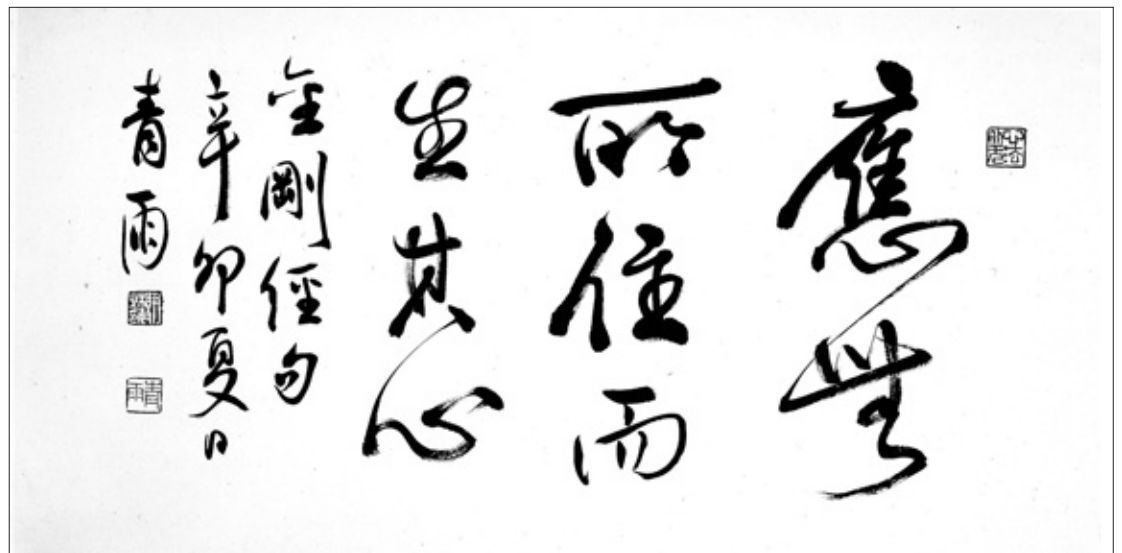 應無
所住而
生其心
金剛經句
辛卯夏日
青雨